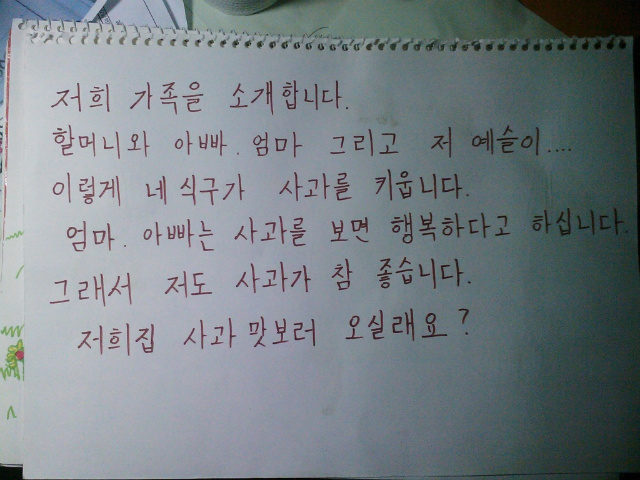 저희 가족을 소개합니다.
할머니와 아빠. 엄마 그리고 저 예슬이....
이렇게 네식구가 사과를 키웁니다.
엄마. 아빠는 사과를 보면 행복하다고 하십니다.
그래서 저도 사과가 참 좋습니다.
저희집 사과 맛보러 오실래요?